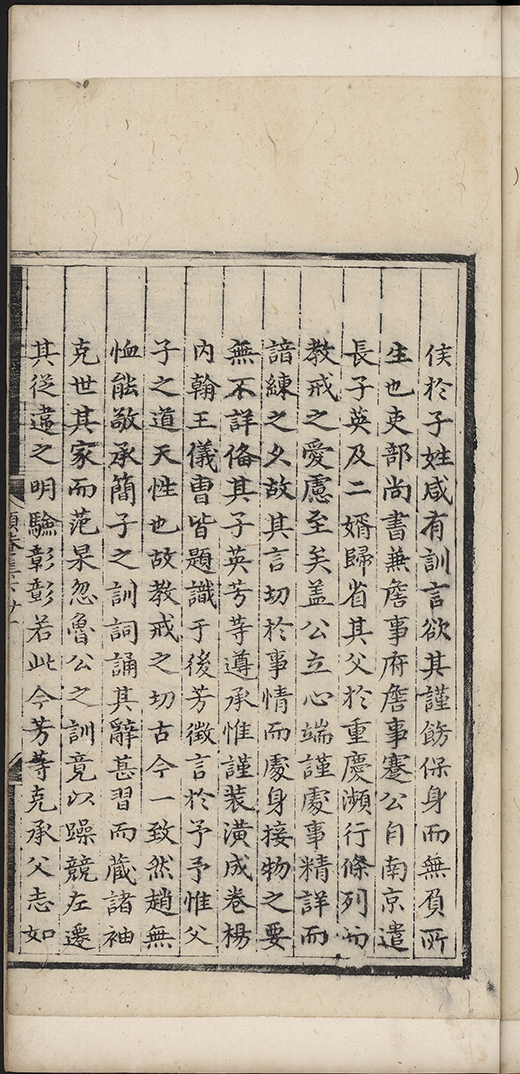 侯於子姓咸有訓言欲其謹飭保身而無負所
生也吏部尚書兼詹事府詹事蹇公自南京遣
長子英及二婿歸省其父於重慶瀕行條列而
教戒之愛慮至矣盖公立心端謹處事精詳而
諳練之久故其言切於事情而處身接物之要
無不詳俻其子英芳等遵承惟謹装潢成卷楊
内翰王儀曹皆題識于後芳徵言於予予惟父
子之道天性也故教戒之切古今一致然趙無
恤能敬承簡子之訓詞誦其辭甚習而蔵諸袖
克世其家而范杲忽魯公之訓竟以躁競左遷
其從違之明驗彰彰若此今芳等克承父志如
頥菴集